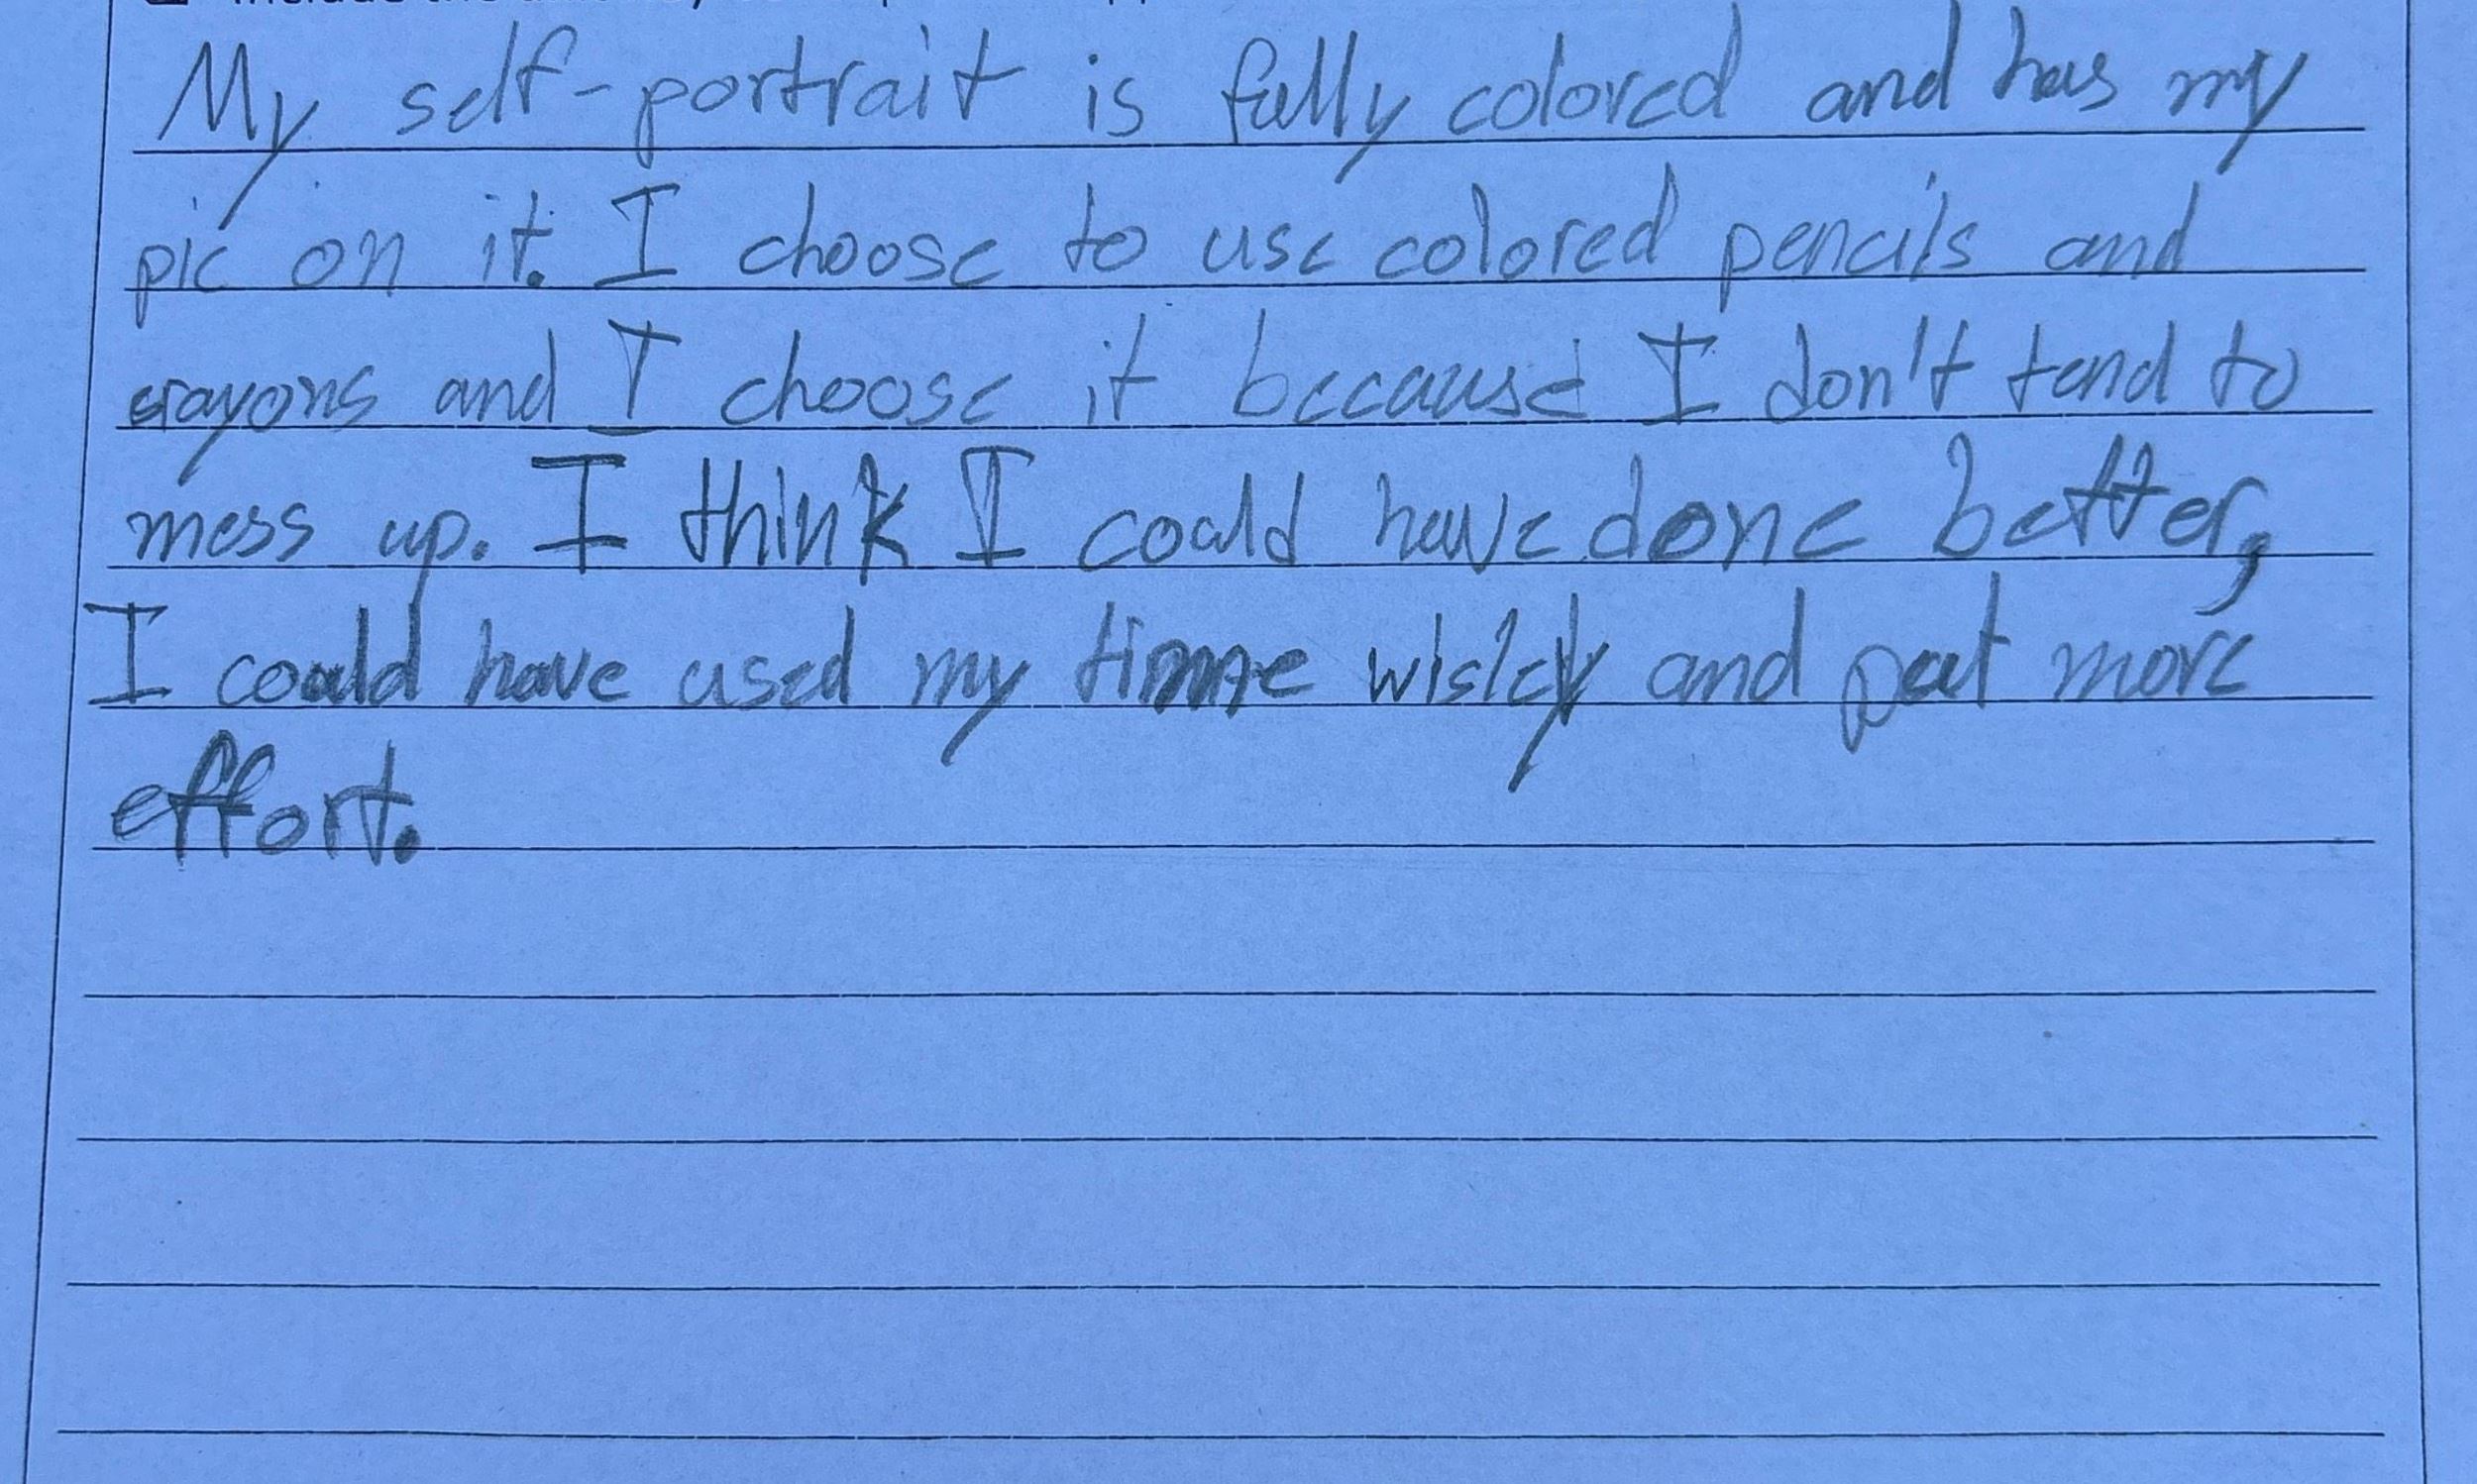 My self-portrait is fully colored and has my
pic on it. I choose to use colored pencils and
crayons and I choose it because I don't tend to
mess up. I think I could have done better,
I could have used my time wisley and put more
effort.